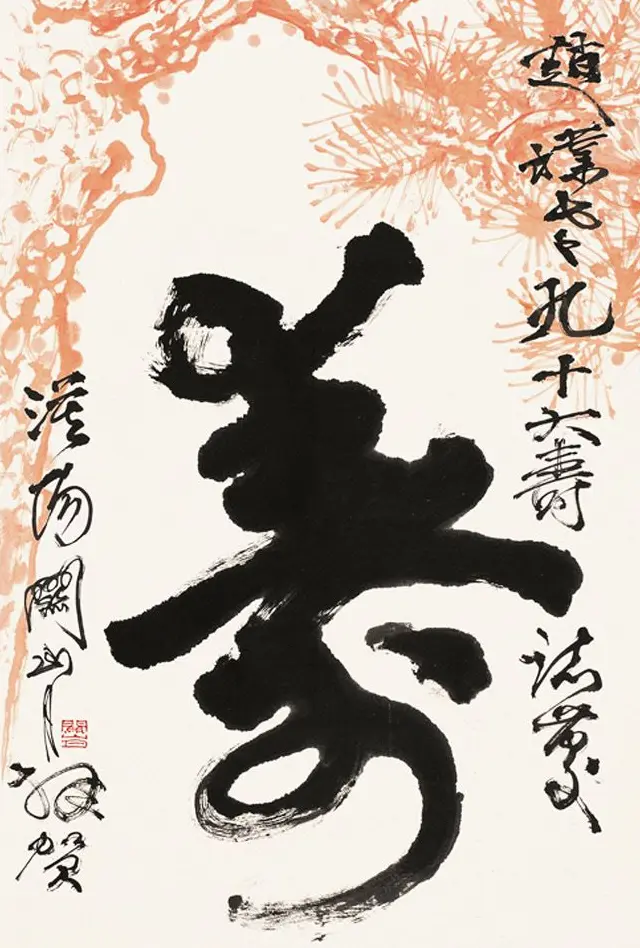 趙樸老九十大壽 誌慶
壽
漠陽關山月敬賀